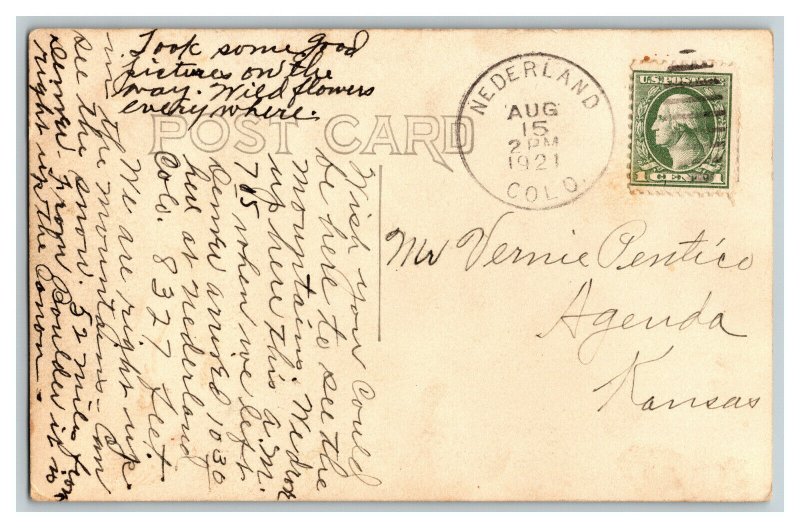 Took some good
pictures on the
way. Wild flowers
everywhere.
POST CARD
NEDERLAND
AUG
15
2 PM
1921
COLO.
U.S. POSTAGE
1 CENT 1
Mr Vernie Pentico
Agenda
Kansas
Wish you could
be here to see the
mountains. We drove
up here this a.m.
7:05 when we left
Denver arrived 1030
here at Nederland
Colo. 8327 feet.
We are right up
in the mountains - Can
see the snow. 52 miles from
Denver. From Boulder it is
right up the Canon.